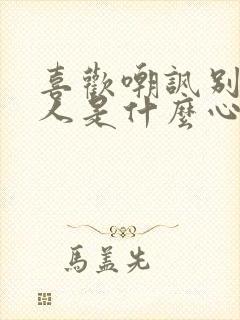 喜歡嘲諷別
人是什麼心
馬蓋先